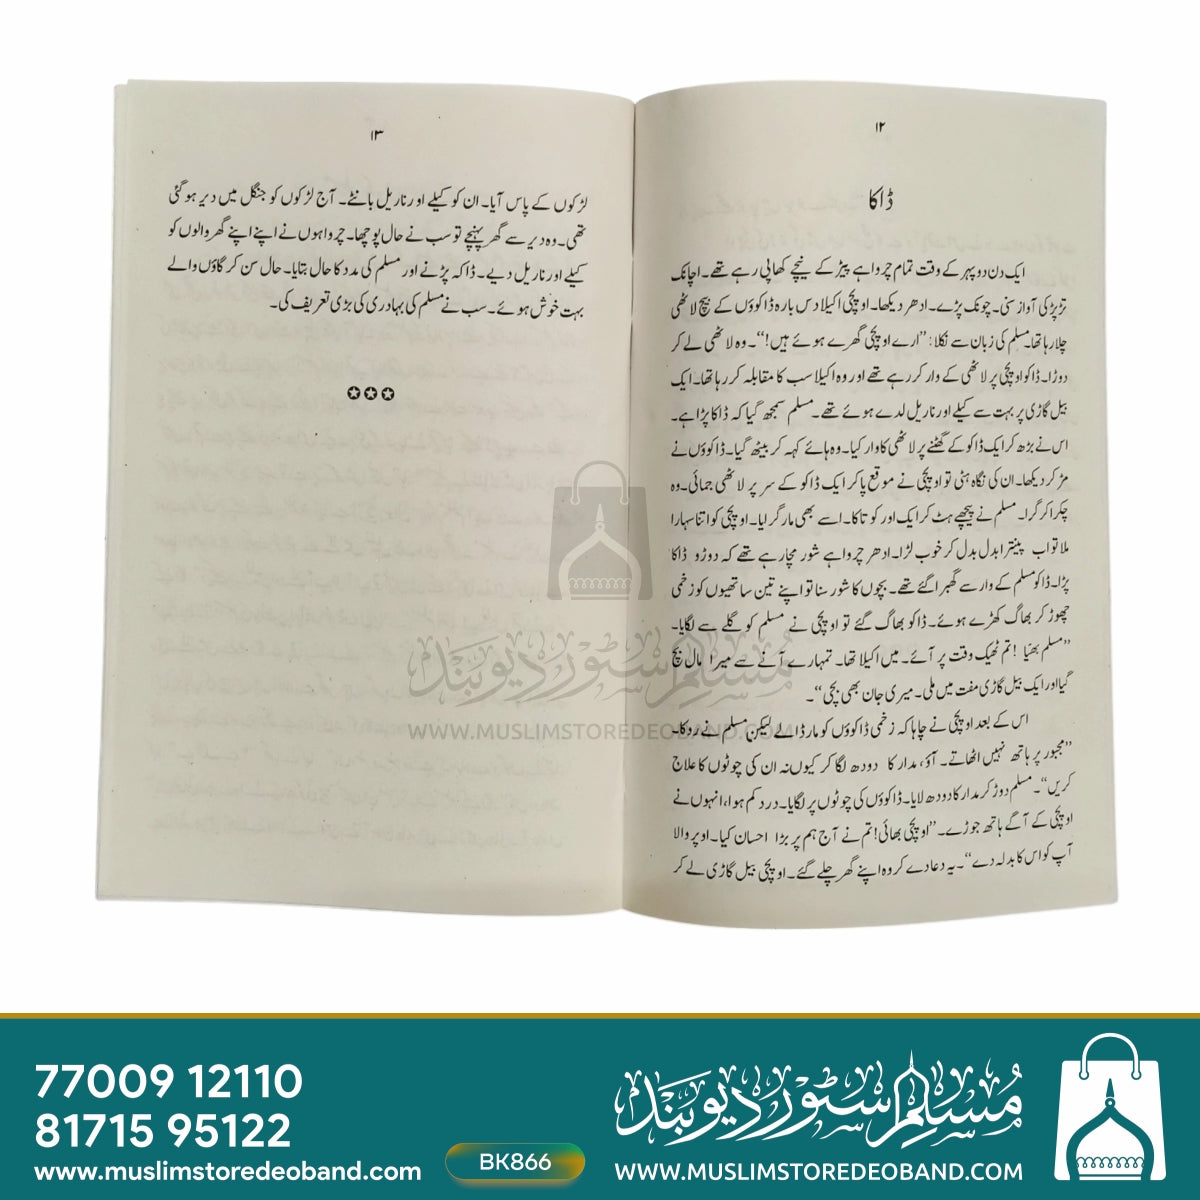 ۱۲
ڈاکا
ایک دن دوپہر کے وقت تمام چرواہے پیڑ کے نیچے کھا پی رہے تھے۔ اچانک
تڑپڑ کی آواز سنی۔ چونک پڑے۔ ادھر دیکھا۔ اوپچی اکیلا دس بارہ ڈاکوؤں کے بیچ لاٹھی
چلا رہا تھا۔ مسلم کی زبان سے نکلا: ”ارے اوپچی گھرے ہوئے ہیں!“۔ وہ لاٹھی لے کر
دوڑا۔ ڈاکو اوپچی پر لاٹھی کے وار کر رہے تھے اور وہ اکیلا سب کا مقابلہ کر رہا تھا۔ ایک
بیل گاڑی پر بہت سے کیلے اور ناریل لدے ہوئے تھے۔ مسلم سمجھ گیا کہ ڈاکا پڑا ہے۔
اس نے بڑھ کر ایک ڈاکو کے گھٹنے پر لاٹھی کا وار کیا۔ وہ ہائے کہہ کر بیٹھ گیا۔ ڈاکوؤں نے
مڑ کر دیکھا۔ ان کی نگاہ ہٹی تو اوپچی نے موقع پا کر ایک ڈاکو کے سر پر لاٹھی جمائی۔ وہ
چکرا کر گرا۔ مسلم نے پیچھے ہٹ کر ایک اور کو تاکا۔ اسے بھی مار گرایا۔ اوپچی کو اتنا سہارا
ملا تو اب پینترا بدل بدل کر خوب لڑا۔ ادھر چرواہے شور مچا رہے تھے کہ دوڑو ڈاکا
پڑا۔ ڈاکو مسلم کے وار سے گھبرا گئے تھے۔ بچوں کا شور سنا تو اپنے تین ساتھیوں کو زخمی
چھوڑ کر بھاگ کھڑے ہوئے۔ ڈاکو بھاگ گئے تو اوپچی نے مسلم کو گلے سے لگایا۔
”مسلم بھیّا! تم ٹھیک وقت پر آئے۔ میں اکیلا تھا۔ تمہارے آنے سے میرا مال بچ
گیا اور ایک بیل گاڑی مفت میں ملی۔ میری جان بھی بچی“۔
اس کے بعد اوپچی نے چاہا کہ زخمی ڈاکوؤں کو مار ڈالے لیکن مسلم نے روکا۔
”مجبور پر ہاتھ نہیں اٹھاتے۔ آؤ، مدار کا دودھ لگا کر کیوں نہ ان کی چوٹوں کا علاج
کریں“۔ مسلم دوڑ کر مدار کا دودھ لایا۔ ڈاکوؤں کی چوٹوں پر لگایا۔ درد کم ہوا، انہوں نے
اوپچی کے آگے ہاتھ جوڑے۔ ”اوپچی بھائی! تم نے آج ہم پر بڑا احسان کیا۔ اوپر والا
آپ کو اس کا بدلہ دے“۔ یہ دعا دے کر وہ اپنے گھر چلے گئے۔ اوپچی بیل گاڑی لے کر
۱۳
لڑکوں کے پاس آیا۔ ان کو کیلے اور ناریل بانٹے۔ آج لڑکوں کو جنگل میں دیر ہو گئی
تھی۔ وہ دیر سے گھر پہنچے تو سب نے حال پوچھا۔ چرواہوں نے اپنے اپنے گھر والوں کو
کیلے اور ناریل دیے۔ ڈاکہ پڑنے اور مسلم کی مدد کا حال بتایا۔ حال سن کر گاؤں والے
بہت خوش ہوئے۔ سب نے مسلم کی بہادری کی بڑی تعریف کی۔
✪✪✪
مسلم سٹور دیوبند
WWW.MUSLIMSTOREDEOBAND.COM
77009 12110
81715 95122
www.muslimstoredeoband.com
BK866
مسلم سٹور دیوبند
WWW.MUSLIMSTOREDEOBAND.COM